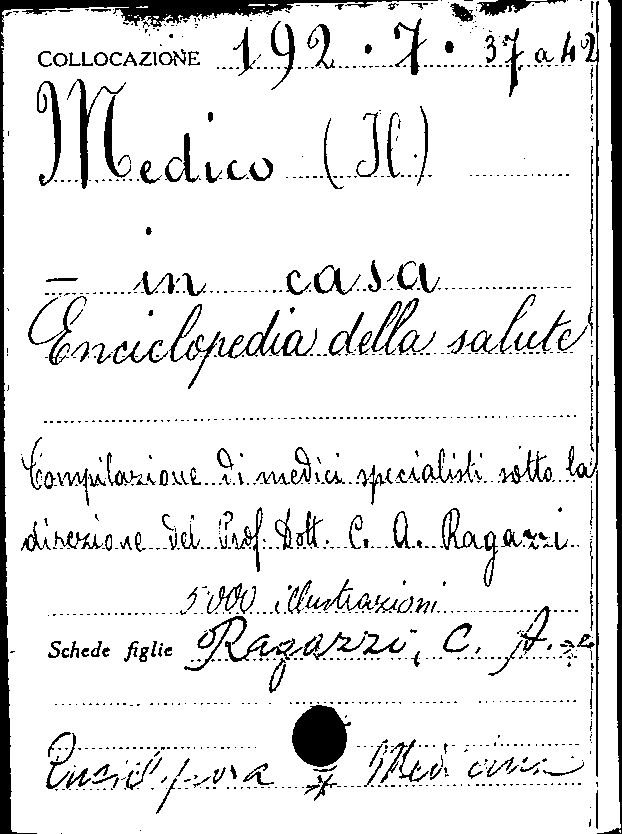 COLLOCAZIONE 192.7.37 a 42
Medico (Il)
- in casa
Enciclopedia della salute
Compilazione di medici specialisti sotto la
direzione del Prof. Dott. C. A. Ragazzi
5000 illustrazioni
Schede figlie Ragazzi, C. A. *
* Medicina